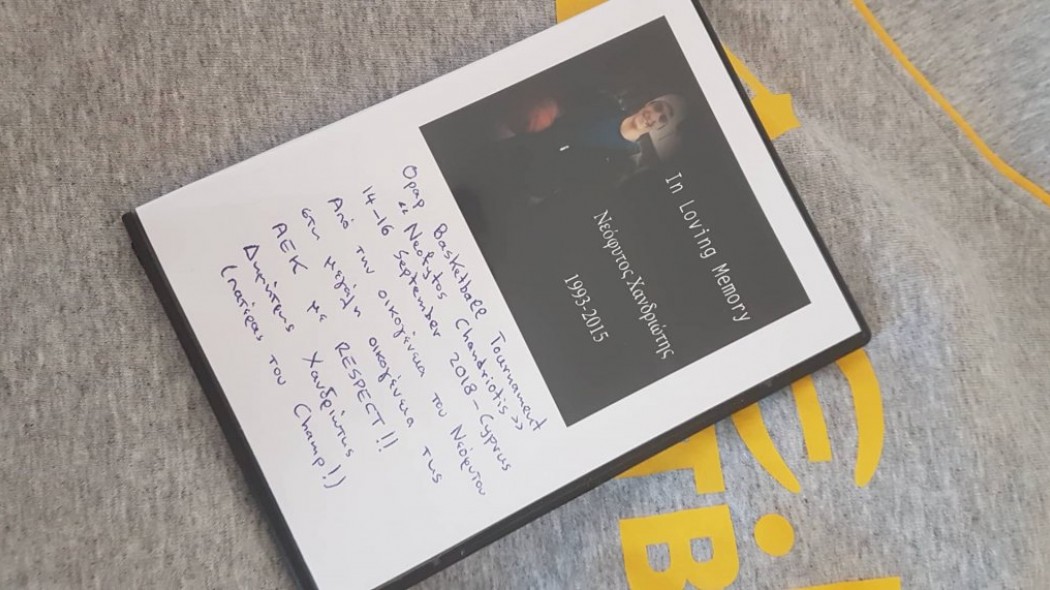 In Loving Memory
Νεόφυτος Χανδριώτης
1993-2015
Opap Basketball Tournament
“Neofytos Chandriotis>>
14-16 September 2018-Cyprus
Από την οικογένεια του Νεόφυτου
στη μεγάλη οικογένεια της
ΑΕΚ με RESPECT!!
Δημήτρης Χανδριώτης
(πατέρας του Champ!)